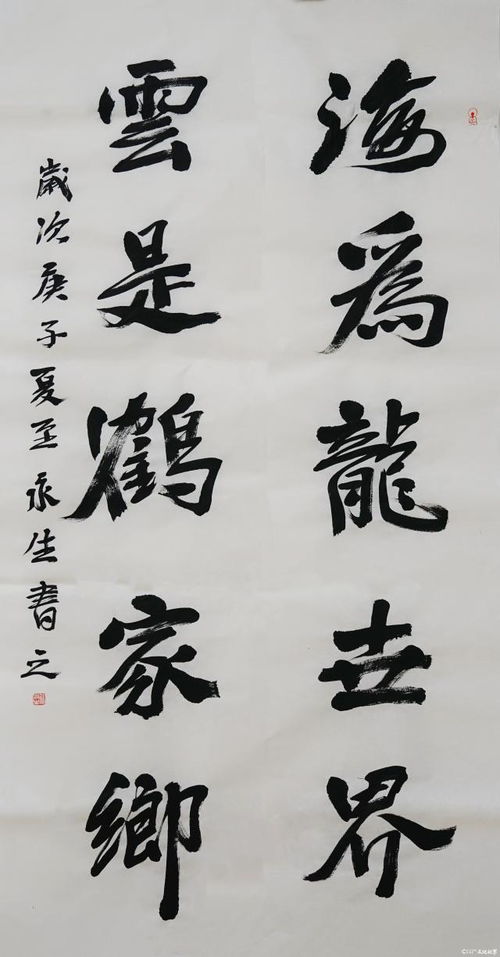 海為龍世界
雲是鶴家鄉
歲次庚子夏至永生書之